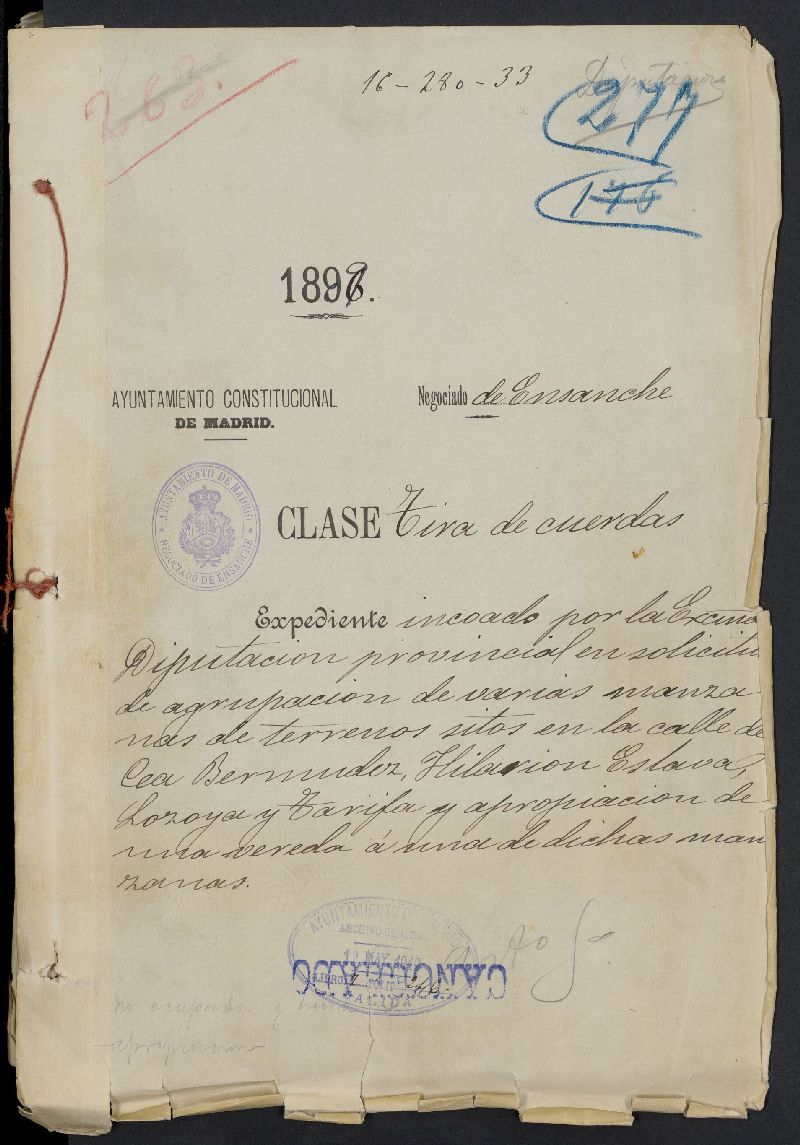 16-280-33
Diputacion
263.
277
176
189
AYUNTAMIENTO CONSTITUCIONAL
DE MADRID.
Negociado de Ensanche
AYUNTAMIENTO DE MADRID
NEGOCIADO DE ENSANCHE
CLASE Tira de cuerdas
Expediente incoado por la Excma
Diputacion provincial en solicitu
de agrupacion de varias manza-
nas de terrenos sitos en la calle de
Cea Bermudez, Hilarion Eslava,
Lozoya y Tarifa y apropiacion de
una vereda á una de dichas man
zanas.
AYUNTAMIENTO DE
ARCHIVO GENERAL
12 MAY.
LIBRO FOLIO
CANCELADO
apropiacion